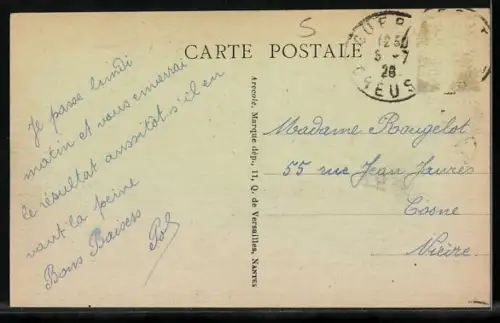 5
CARTE POSTALE
GUER
12 30
5 - 7
26
CREUS
Je passe lundi
matin et vous enverrai
le résultat aussitôt s'il en
vaut la peine
Bons Baisers
Arecole, Marque dép., 11, Q. de Versailles, NANTES
Madame Rougelot
55 rue Jean Jaurès
Cosne
Nièvre